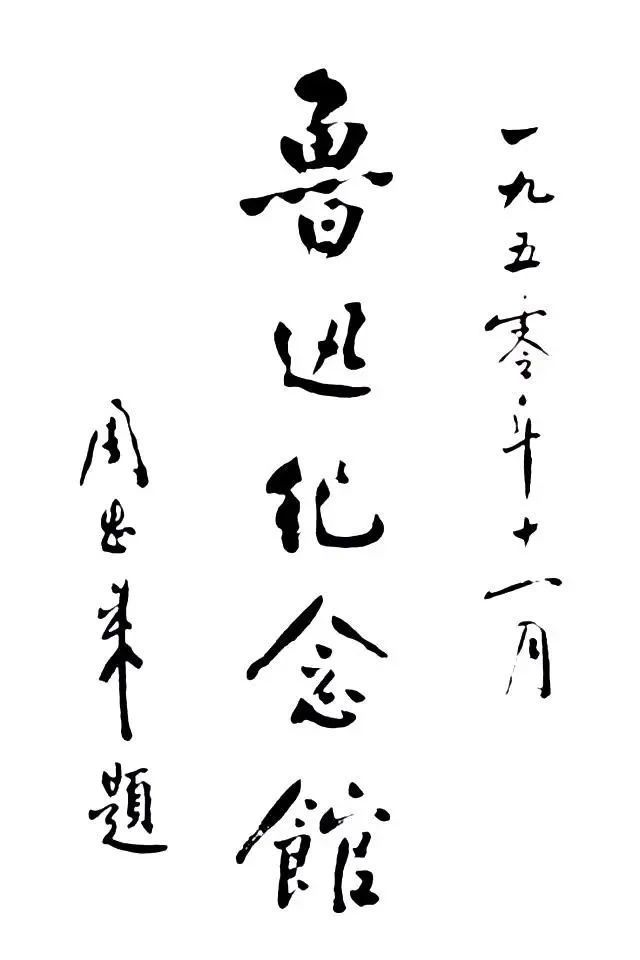 一九五零年十一月
魯迅紀念館
周恩來題